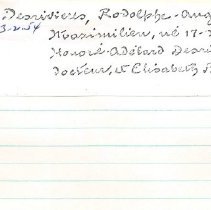 Desrivieres, Rodolphe-Aug
3-2-54
Maximilien, né 17-
Honoré-Adélard Desri
Docteur, & Elisabeth